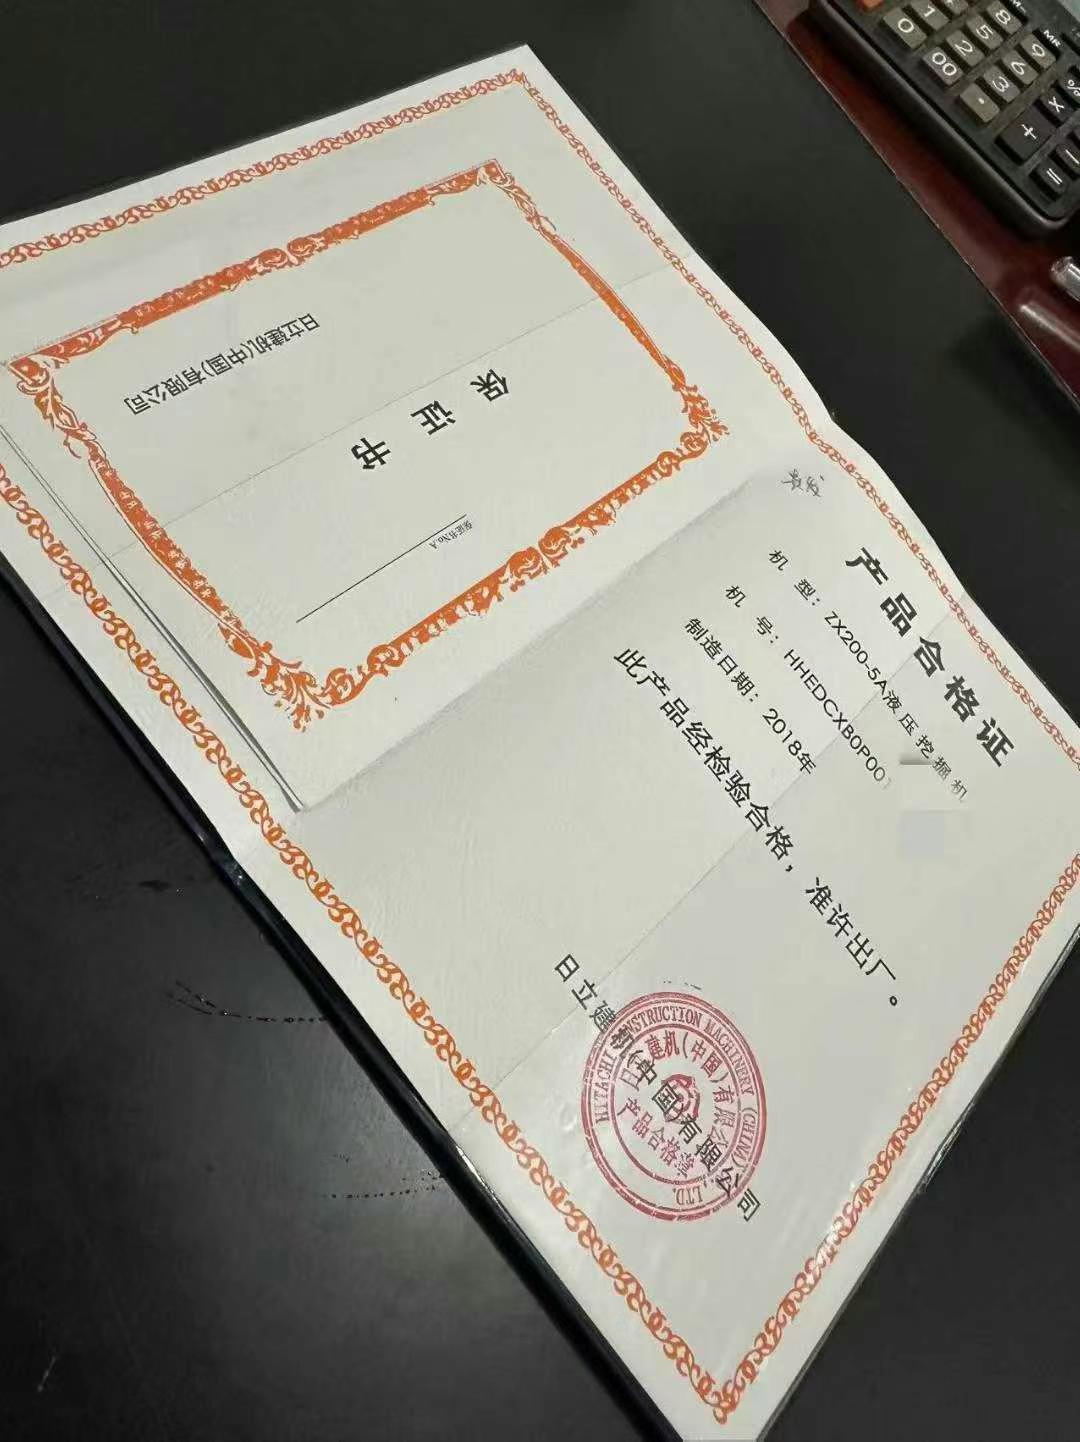 产品合格证
机 型：ZX200-5A液压挖掘机
机 号：HHEDCXB0P001
制造日期：2018年
此产品经检验合格，准许出厂。
日立建机(中国)有限公司
HITACHI CONSTRUCTION MACHINERY (CHINA) CO., LTD.
日立建机(中国)有限公司
产品合格章
保证书No.A
保 证 书
日立建机(中国)有限公司
MR
%
8 9 ×
5 6 + −
1 2 3 =
0 00 ·